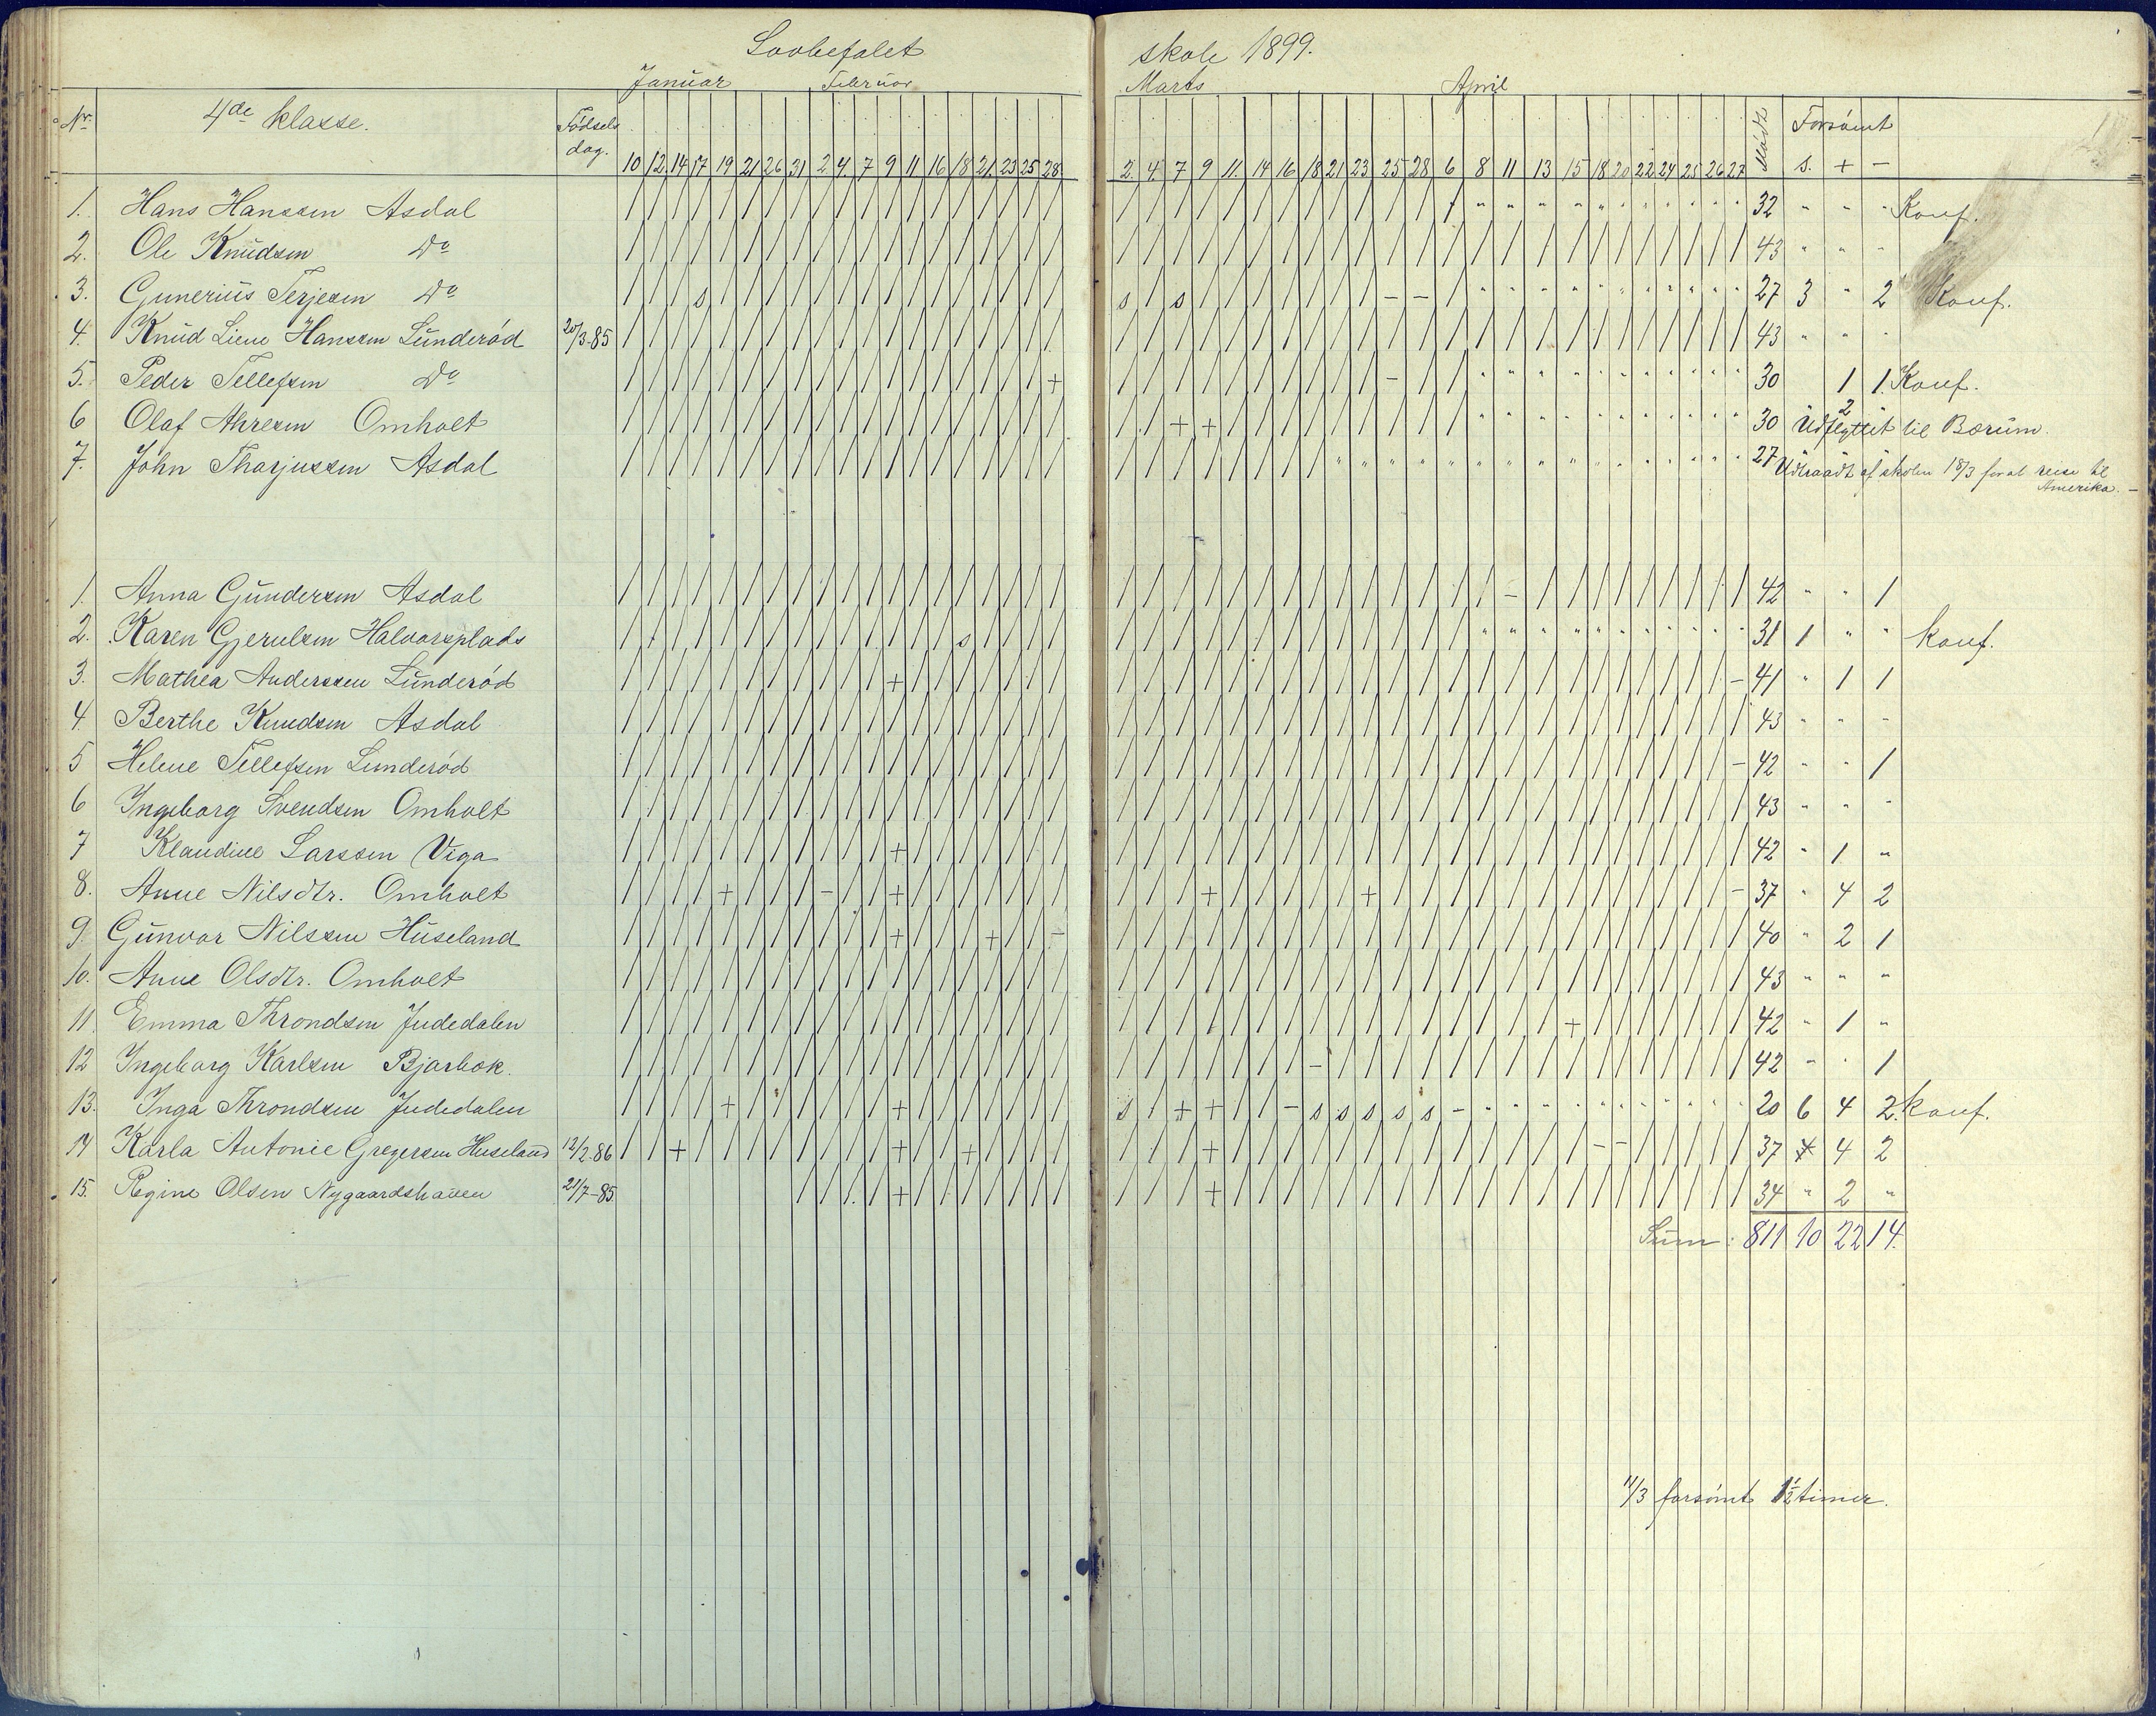 Lovbefalet skole 1899.
Januar Februar Marts April
Nr. 4de klasse. Fødsels dag. 10 12 14 17 19 21 26 31 2 4 7 9 11 16 18 21 23 25 28 2 4 7 9 11 14 16 18 21 23 25 28 6 8 11 13 15 18 20 22 24 25 26 27 Mødt Forsömt s. + -
1. Hans Hanssen Asdal / / / / / / / / / / / / / / / / / / / / / / / / / / / / / / / / " " " " " " " " " " " 32 " " " Konf.
2. Ole Knudsen Do / / / / / / / / / / / / / / / / / / / / / / / / / / / / / / / / / / / / / / / / / / / 43 " " "
3. Gunerius Terjesen Do / / / s / / / / / / / / / / / / / / / s / s / / / / / / / - - / " " " " " " " " " " " 27 3 " 2 Konf.
4. Knud Liene Hanssen Lunderød 20/3-85 / / / / / / / / / / / / / / / / / / / / / / / / / / / / / / / / / / / / / / / / / / / 43 " " "
5. Peder Tellefsen Do / / / / / / / / / / / / / / / / / / + / / / / / / / / / / - / / " " " " " " " " " " " 30 1 1. Konf.
6 Olaf Ahresen Omholt / / / / / / / / / / / / / / / / / / / / / + + / / / / / / / / / " " " " " " " " " " " 30 2 Udflyttet til Bærum.
7. John Tharjussen Asdal / / / / / / / / / / / / / / / / / / / / / / / / / / / " " " " " " " " " " " " " " " " 27 Udtraadt af skolen 18/3 for at reise til
Amerika. -
1. Anna Gundersen Asdal / / / / / / / / / / / / / / / / / / / / / / / / / / / / / / / / / - / / / / / / / / / 42 " " 1
2. Karen Gjerulsen Halvorsplads / / / / / / / / / / / / / / s / / / / / / / / / / / / / / / / / " " " " " " " " " " " 31 1 " " Konf.
3. Mathea Anderssen Lunderød / / / / / / / / / / / + / / / / / / / / / / / / / / / / / / / / / / / / / / / / / / - 41 " 1 1
4. Berthe Knudsen Asdal / / / / / / / / / / / / / / / / / / / / / / / / / / / / / / / / / / / / / / / / / / / 43 " " "
5 Helene Tellefsen Lunderød / / / / / / / / / / / / / / / / / / / / / / / / / / / / / / / / / / / / / / / / / / - 42 " " 1
6 Ingeborg Svendsen Omholt / / / / / / / / / / / / / / / / / / / / / / / / / / / / / / / / / / / / / / / / / / / 43 " " "
7 Klaudine Larssen Viga / / / / / / / / / / / + / / / / / / / / / / / / / / / / / / / / / / / / / / / / / / / 42 " 1 "
8. Anne Nilsdtr. Omholt / / / / + / / / - / / + / / / / / / / / / / + / / / / / + / / / / / / / / / / / / / - 37 " 4 2
9. Gunvor Nilssen Huseland / / / / / / / / / / / + / / / + / / - / / / / / / / / / / / / / / / / / / / / / / / / 40 " 2 1
10. Anne Olsdtr. Omholt / / / / / / / / / / / / / / / / / / / / / / / / / / / / / / / / / / / / / / / / / / / 43 " " "
11. Emma Throndsen Judedalen / / / / / / / / / / / / / / / / / / / / / / / / / / / / / / / / / / / + / / / / / / / 42 " 1 "
12 Ingeborg Karlsen Bjorbæk. / / / / / / / / / / / / / / / / / / / / / / / / / / - / / / / / / / / / / / / / / / / 42 " " 1
13. Inga Throndsen Judedalen / / / / + / / / / / / + / / / / / / / s / + + / / - s s s s s - " " " " " " " " " " " 20 6 4 2. Konf.
14 Karla Antonie Gregersen Huseland 12/2-86 / / + / / / / / / / / + / / + / / / / / / / + / / / / / / / / / / / / / - - / / / / / 37 4 2
15. Regine Olsen Nygaardshauen 21/7-85 / / / / + / / / / / / / / / / + / / / / / / / / / / / / / / / / / / / / 34 " 2 "
Sum: 811 10 22 14.
11/3 forsömt 1½ timer.